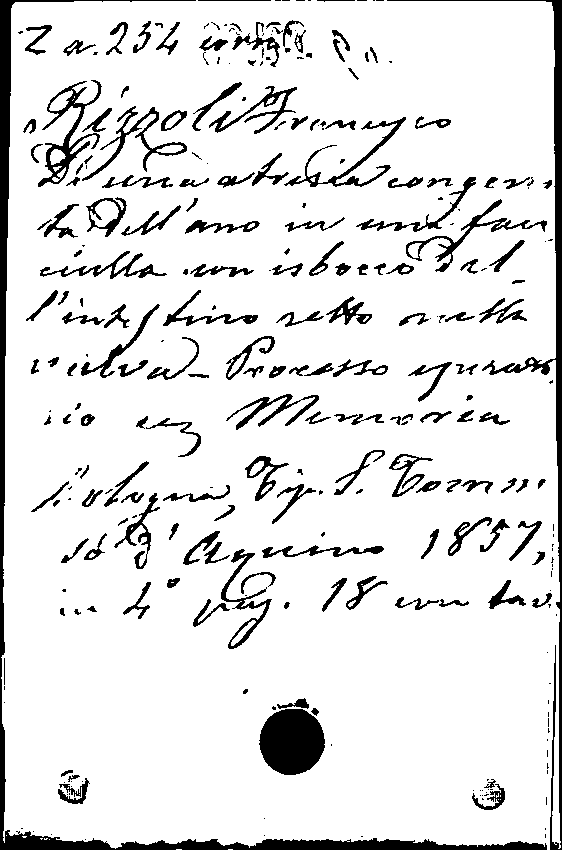 Z a. 254
Rizzoli Francesco
Di una atresia congeni
ta dell'ano in una fan
ciulla con isbocco del
l'intestino retto nella
vulva - Processo operato
rio ecc Memoria
Bologna, Tip. S. Tomma
so d'Aquino 1857,
in 4° pag. 18 con tav.